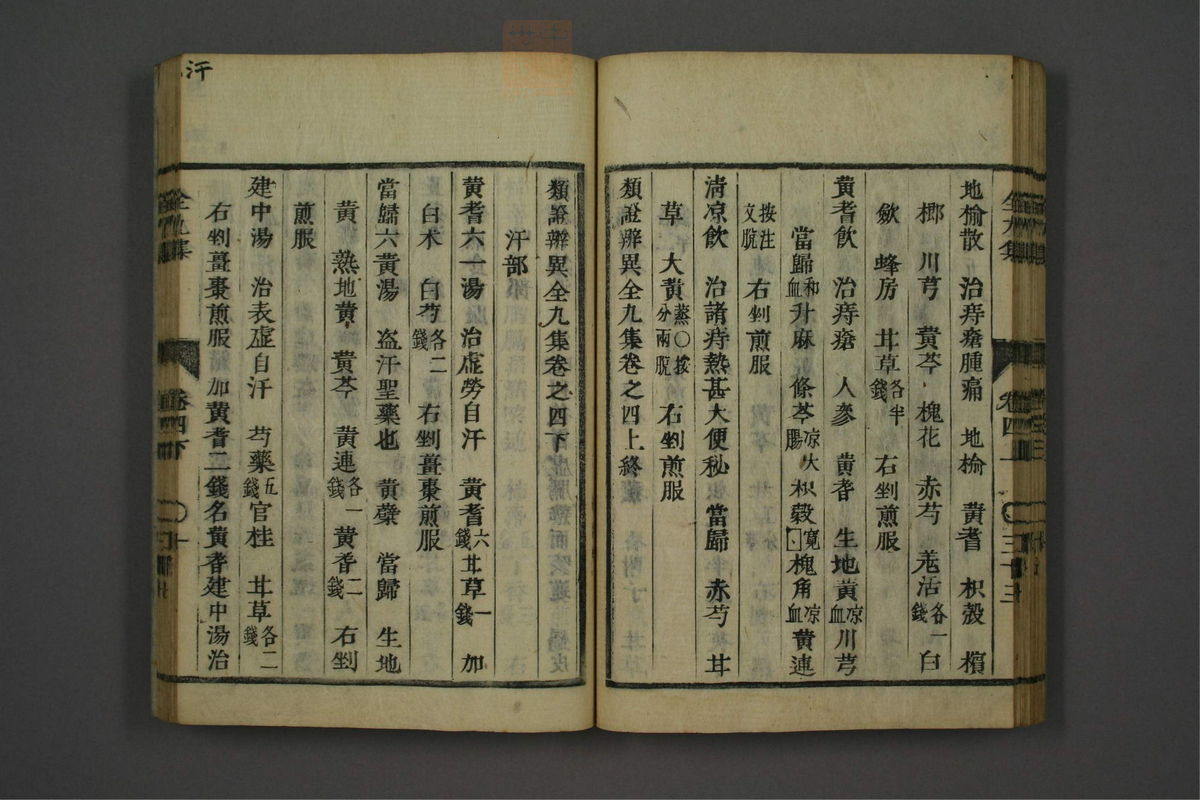 地榆散　治痔瘡腫痛　地榆　黄耆　枳殼　檳
榔　川芎　黄芩　槐花　赤芍　羗活各一錢　白
歛　蜂房　甘草各半錢　右剉煎服
黄耆飲　治痔瘡　人參　黄耆　生地黄凉血　川芎
當歸和血　升麻　條芩凉大腸　枳殼寛　槐角凉血　黄連
按注文脱　右剉煎服
清凉飲　治諸痔熱甚大便秘　當歸　赤芍　甘
草　大黄蒸○按分兩脱　右剉煎服
類證辨異全九集卷之四上終
全九集
卷四上
三十三
汗
類證辨異全九集卷之四下
汗部
黄耆六一湯　治虛勞自汗　黄耆六錢　甘草一錢　加
白术　白芍各二錢　右剉薑棗煎服
當歸六黄湯　盗汗聖藥也　黄蘗　當歸　生地
黄　熟地黄　黄芩　黄連各一錢　黄耆二錢　右剉
煎服
建中湯　治表虛自汗　芍藥五錢　官桂　甘草各二錢
右剉薑棗煎服加黄耆二錢名黄耆建中湯治
全九集
卷四下
一